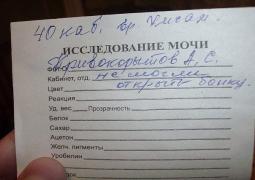 40 каб. вр. Хисам.
ИССЛЕДОВАНИЕ МОЧИ
Фамилия Кривокорытов А. С.
Кабинет, отд. не могли
Цвет открыть банку.
Реакция
Уд. вес Прозрачность
Белок
Сахар
Ацетон
Желч. пигменты
Уробелин